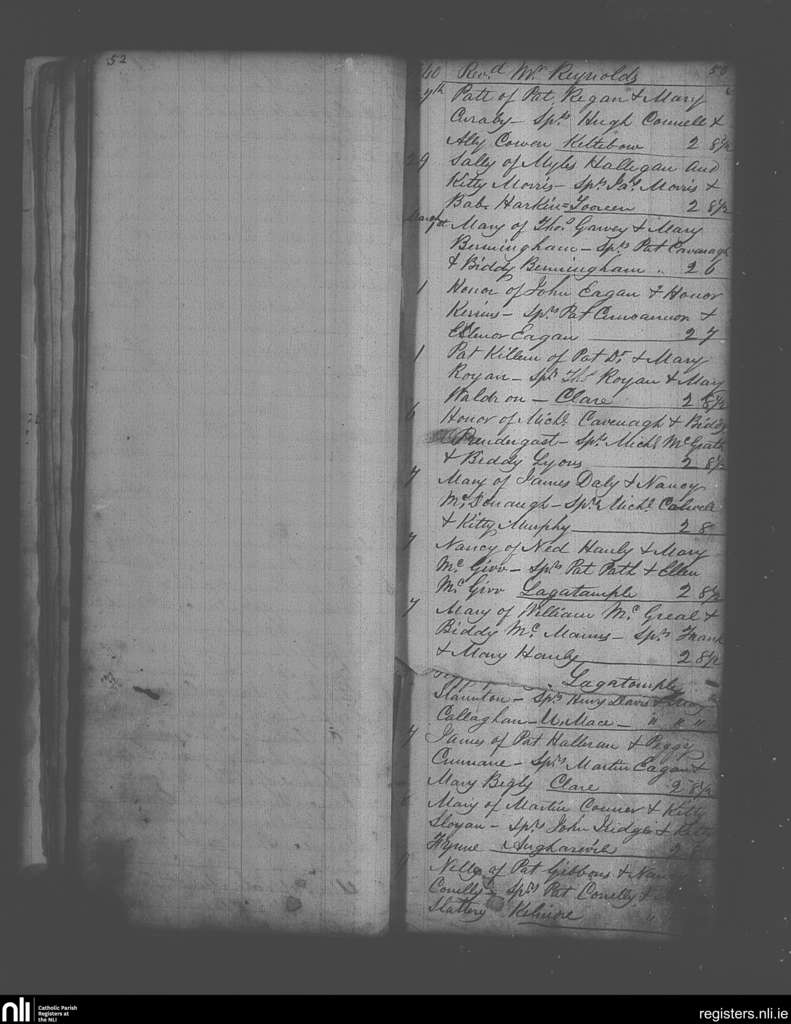 52
40 Revd Mr Reynolds 50
7th Patt of Pat Regan & Mary
Curaby - Sprs Hugh Connell &
Ally Cowen Kiltebow 2 8½
29 Sally of Myles Hallegan and
Kitty Morris - Sprs Jas Morris &
Bab. Harkin = Tooreen 2 8½
March 1st Mary of Thos Garvey & Mary
Bermingham - Sprs Pat Cavanagh
& Biddy Bermingham " 2 6
1 Honor of John Eagan & Honor
Kerrins - Sprs Pat &
Ellenor Eagan 2 7
1 Pat Killeen of Pat Do & Mary
Royan - Sprs Thos Royan & Mary
Waldron - Clare 2 8½
6 Honor of Michl Cavenagh & Biddy
Prendergast - Sprs Michl McGrath
& Biddy Lyons 2 8½
7 Mary of James Daly & Nancy
McDonaugh - Sprs Michl
& Kitty Murphy 2 8
7 Nancy of Ned Hanly & Mary
Mc Givv - Sprs Pat & Ellen
Mc Givv Lagatample 2 8½
7 Mary of William Mc Greal &
Biddy Mc Manus - Sprs Frank
& Mary Hanly 2 8½
Lagatample
Staunton - Sprs Henry Davis & Mary
Callaghan - U. Mace - " " "
7 James of Pat Halleran & Peggy
Cunnane - Sprs Martin Eagan &
Mary Begly Clare 2 8½
Mary of Martin Conner & Kitty
Sloyan - Sprs John &
Flynne 2 8
Nelly of Pat Gibbons & Nancy
Conelly - Sprs Pat Conelly &
Slattery Kilmore
nli
Catholic Parish
Registers at
the NLI
registers.nli.ie